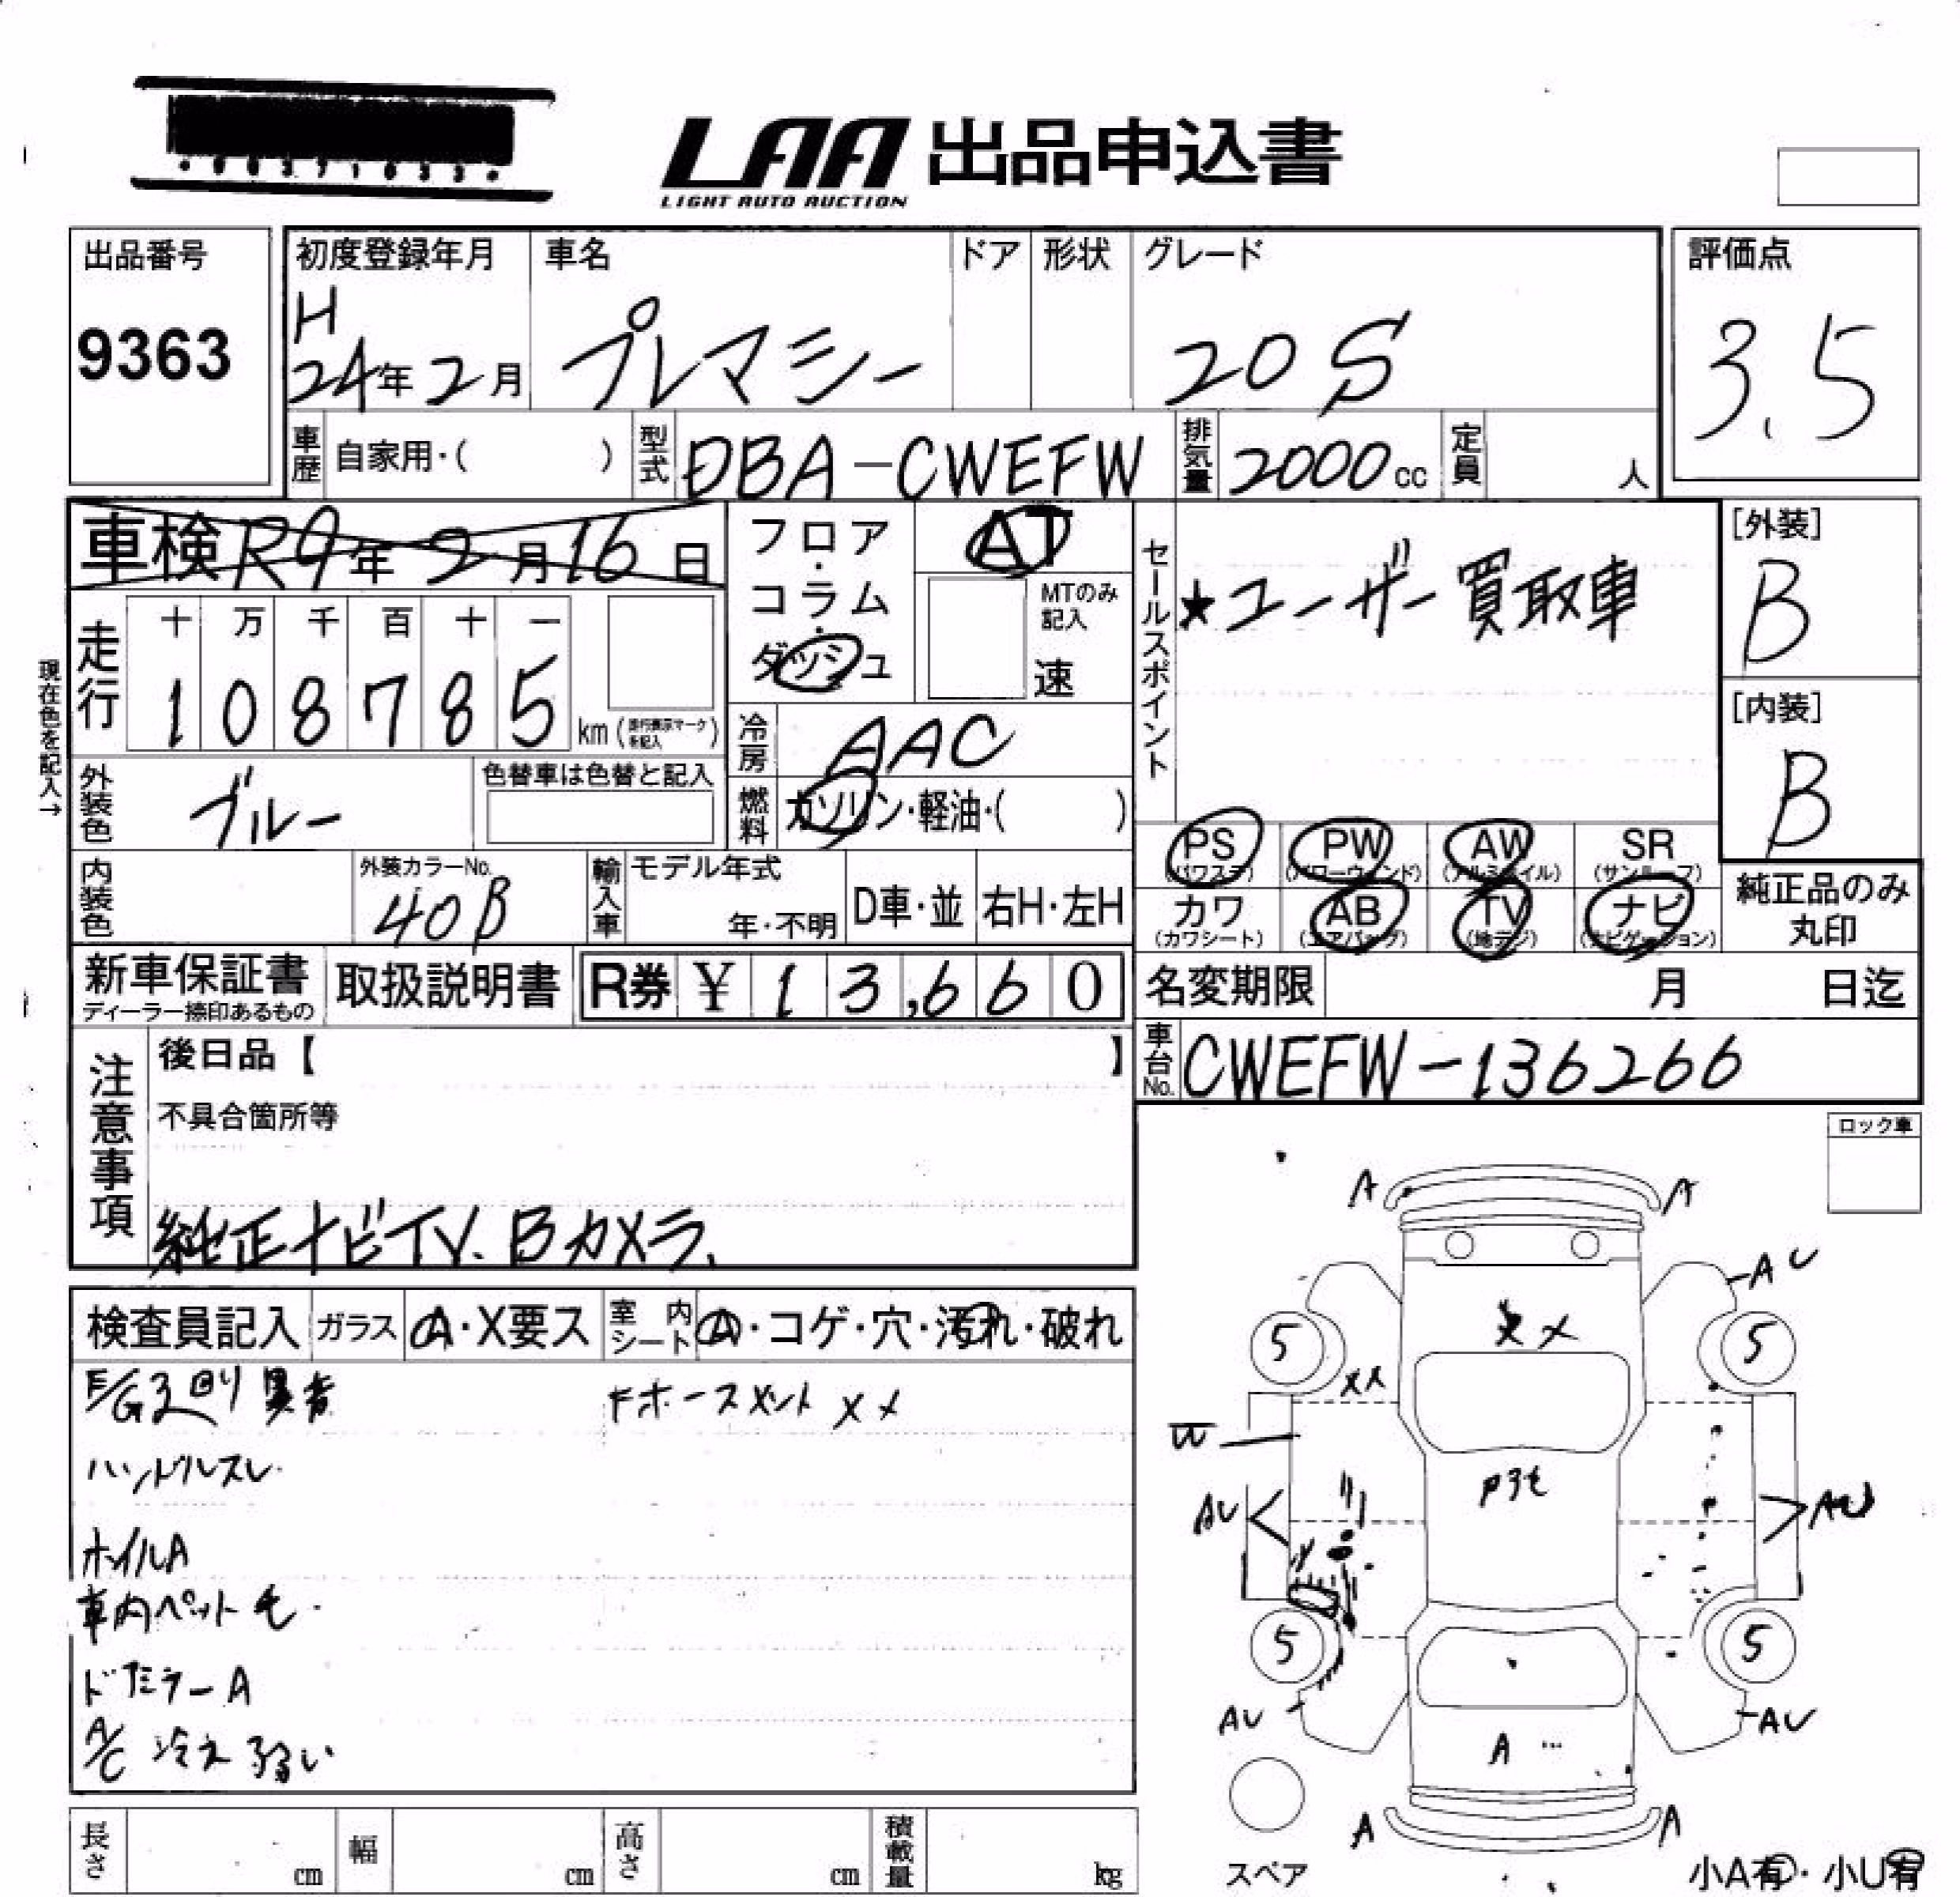 LAA 出品申込書
LIGHT AUTO AUCTION
出品番号
9363
初度登録年月
H
24年2月
車名
プレマシー
ドア
形状
グレード
20S
評価点
3.5
車歴 自家用・( )
型式 DBA-CWEFW
排気量 2000cc
定員 人
車検 R9年2月16日
フロア・コラム・ダッシュ
AT
MTのみ記入
速
セールスポイント
★ユーザー買取車
[外装]
B
[内装]
B
現在色を記入→
走行
十 万 千 百 十 一
1 0 8 7 8 5 km
冷房 AAC
外装色 ブルー
色替車は色替と記入
燃料 ガソリン・軽油・( )
PS PW AW SR
(パワステ) (パワーウィンド) (アルミホイル) (サンルーフ)
カワ AB TV ナビ
(カワシート) (エアバッグ) (地デジ) (ナビゲーション)
純正品のみ
丸印
内装色
外装カラーNo.
40B
輸入車
モデル年式
年・不明
D車・並
右H・左H
新車保証書
ディーラー捺印あるもの
取扱説明書
R券 ¥ 13,660
名変期限 月 日迄
車台No. CWEFW-136266
注意事項
後日品【 】
不具合箇所等
純正ナビTV.Bカメラ.
ロック車
検査員記入
ガラス A・X要ス
室内シート A・コゲ・穴・汚れ・破れ
E/G
ハンドルスレ.
Fホースメント XX
ホイルA
車内ペット毛.
A
A/C 冷え弱い
A A
AU
X
5 5
XX
W
AU
5 5
AU AU
A
A A
スペア
小A有・小U有
長さ cm
幅 cm
高さ cm
積載量 kg